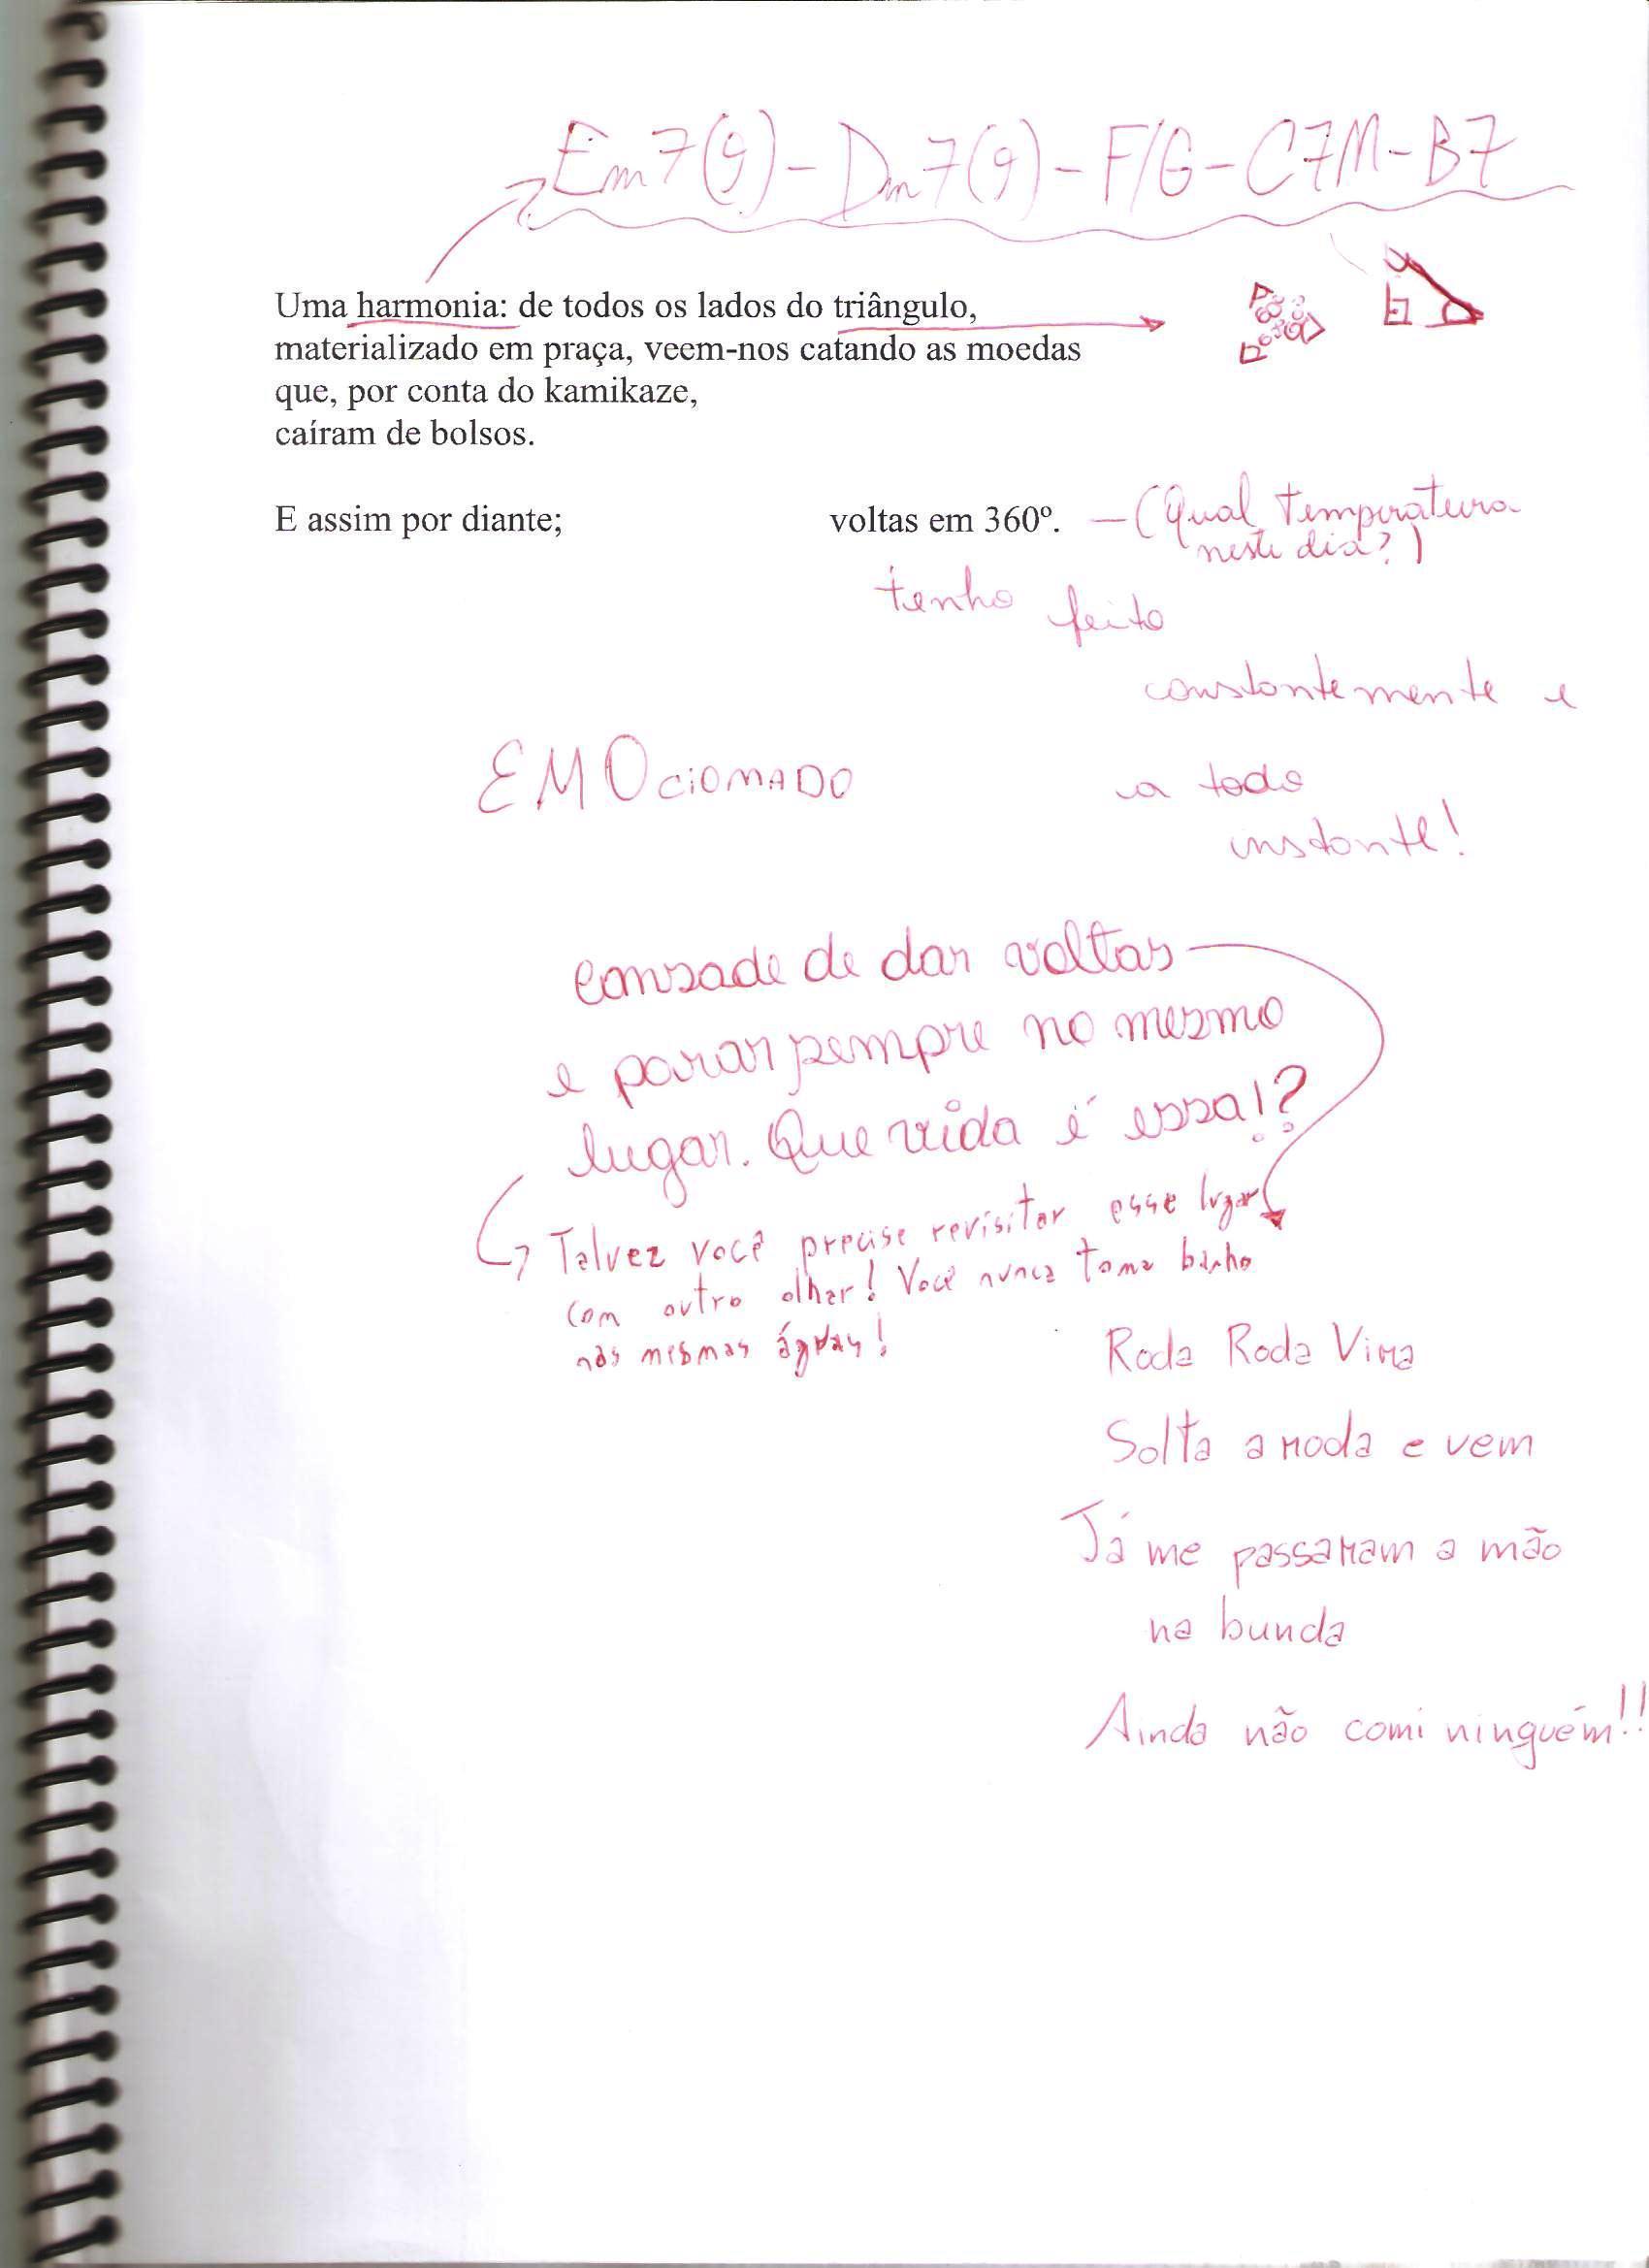 Em7(9) - Dm7(9) - F/G - C7M - B7
Uma harmonia: de todos os lados do triângulo,
materializado em praça, veem-nos catando as moedas
que, por conta do kamikaze,
caíram de bolsos.
E assim por diante; voltas em 360º. — (Qual temperatura
neste dia?)
tenho feito
constantemente e
a todo
instante!
EMOcionado
cansade de dar voltas
e parar sempre no mesmo
lugar. Que vida é essa!?
Talvez você precise revisitar esse lugar
com outro olhar! Você nunca toma banho
nas mesmas águas!
Roda Roda Vira
Solta a roda e vem
Já me passaram a mão
na bunda
Ainda não comi ninguém!!